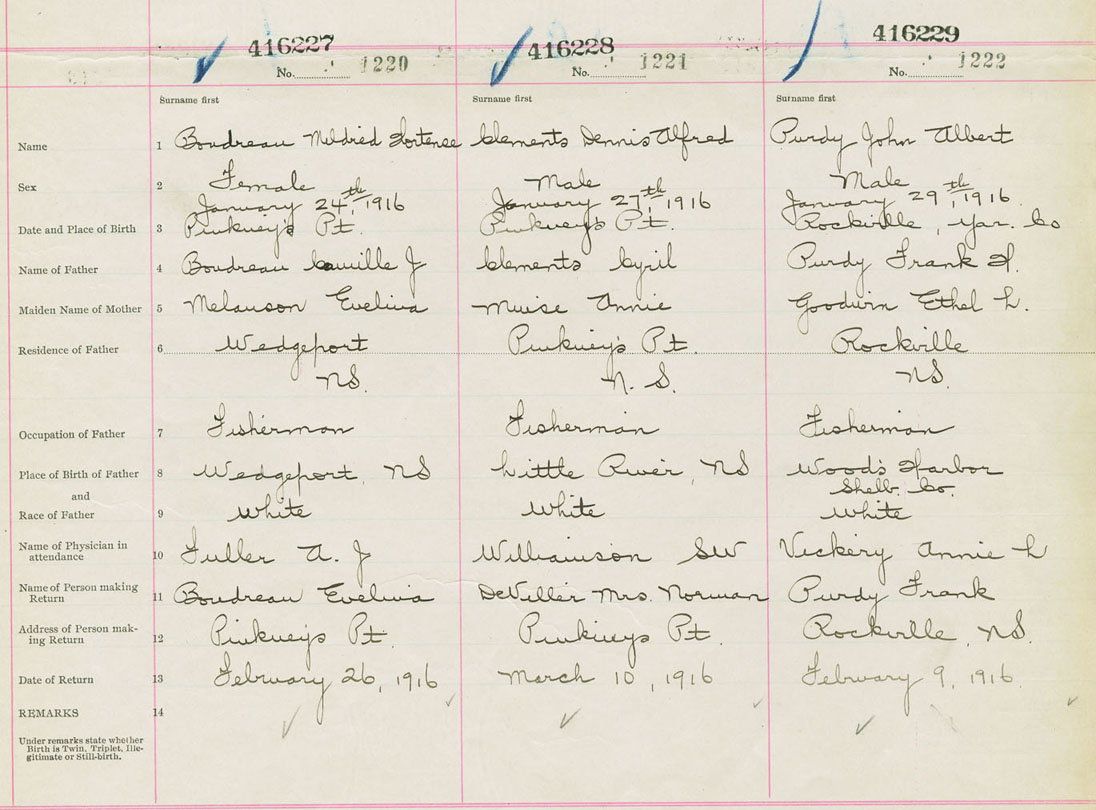 416227 416228 416229
No. 1220 No. 1221 No. 1222
Surname first Surname first Surname first
Name 1 Boudreau Mildred Hortense Clements Dennis Alfred Purdy John Albert
Sex 2 Female Male Male
January 24th, 1916 January 27th, 1916 January 29th, 1916
Date and Place of Birth 3 Pinkney's Pt. Pinkney's Pt. Rockville, Yar. Co
Name of Father 4 Boudreau Camille J Clements Cyril Purdy Frank H.
Maiden Name of Mother 5 Melanson Evelina Muise Annie Goodwin Ethel L.
Residence of Father 6 Wedgeport Pinkney's Pt. Rockville
NS. N. S. NS.
Occupation of Father 7 Fisherman Fisherman Fisherman
Place of Birth of Father 8 Wedgeport, NS Little River, NS Woods Harbor
and Shelb. Co.
Race of Father 9 White White White
Name of Physician in
attendance 10 Fuller A. J Williamson SW Vickery Annie L
Name of Person making
Return 11 Boudreau Evelina DeViller Mrs. Norman Purdy Frank
Address of Person mak-
ing Return 12 Pinkneys Pt. Pinkneys Pt. Rockville, NS.
Date of Return 13 February 26, 1916 March 10, 1916 February 9, 1916.
REMARKS 14
Under remarks state whether
Birth is Twin, Triplet, Ille-
gitimate or Still-birth.